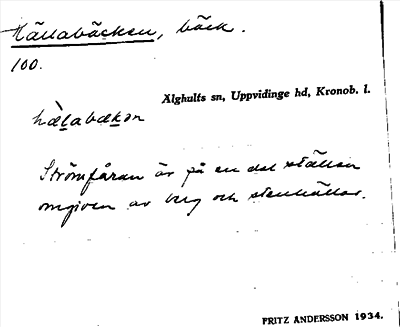 Hällabäcken, bäck.
100.
Älghults sn, Uppvidinge hd, Kronob. l.
hæ̀l̲abæk̲ən
Strömfåran är på en del ställen
omgiven av berg och stenhällar.
FRITZ ANDERSSON 1934.